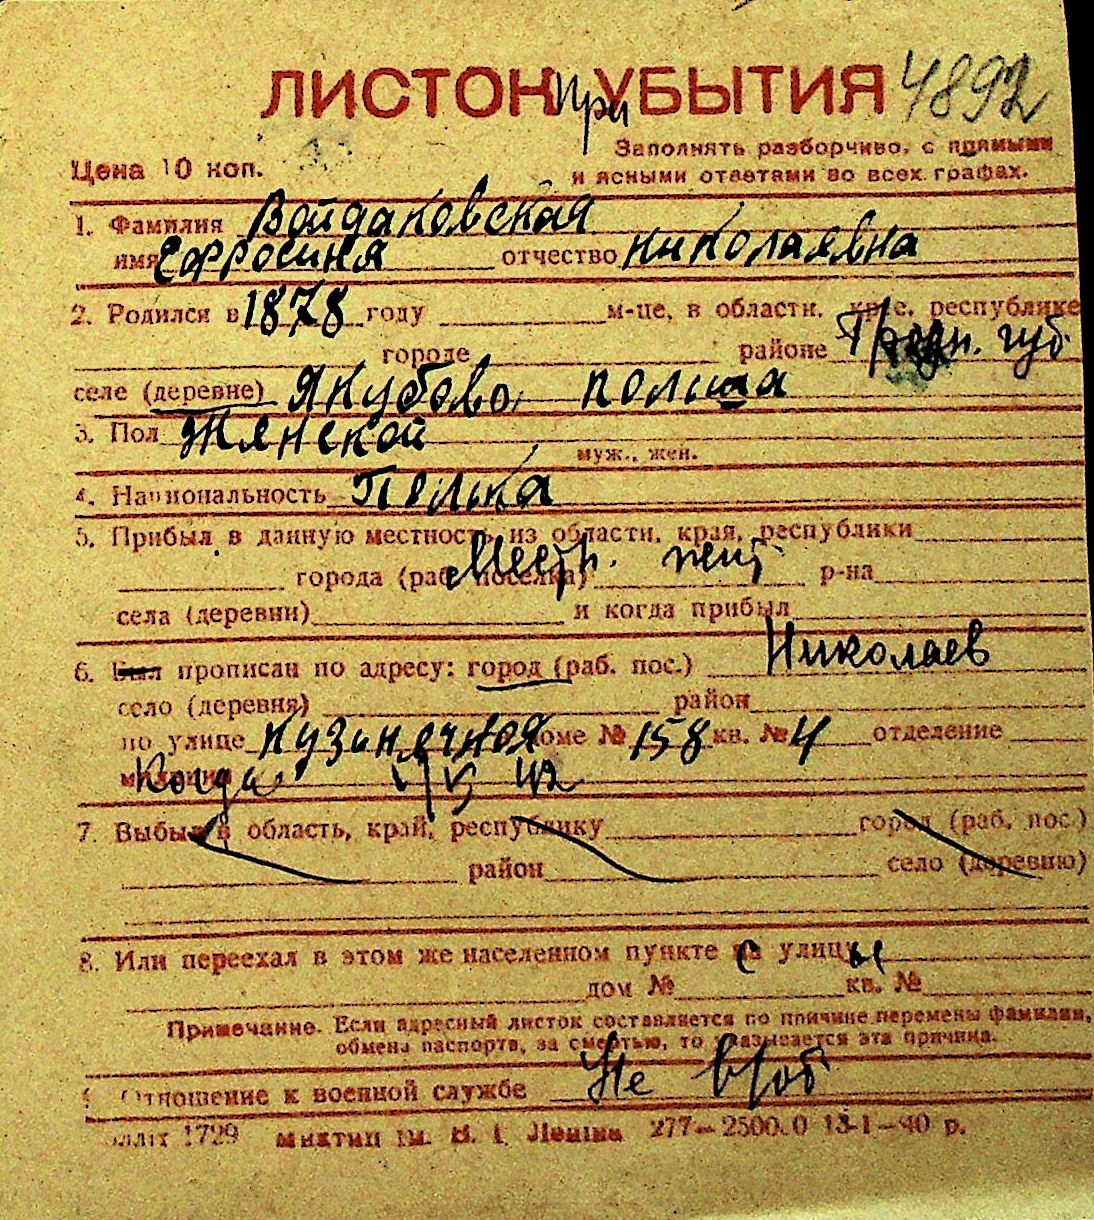 ЛИСТОК при УБЫТИЯ 4892
Цена 10 коп.
Заполнять разборчиво, с прямыми
и ясными ответами во всех графах.
1. Фамилия Войдаковская
имя Ефросиня отчество николаявна
2. Родился в 1878 году м-це, в области, крае, республике
городе районе Гродн. губ.
селе (деревне) Якубово, польша
3. Пол Жянской муж., жен.
4. Национальность Полька
5. Прибыл в данную местность из области, края, республики
города (раб. поселка) Местн. р-на
села (деревни) и когда прибыл
6. Был прописан по адресу: город (раб. пос.) Николаев
село (деревня) район
по улице кузнячная доме № 158 кв. № 4 отделение
милиции Когда 42
7. Выбыл в область, край, республику город (раб. пос.)
район село (деревню)
8. Или переехал в этом же населенном пункте с улицы
дом № кв. №
Примечание. Если адресный листок составляется по причине перемены фамилии,
обмена паспорта, за смертью, то указывается эта причина.
Отношение к военной службе Не
1729 им. В. І. Леніна 277—2500.0 13-1—40 р.